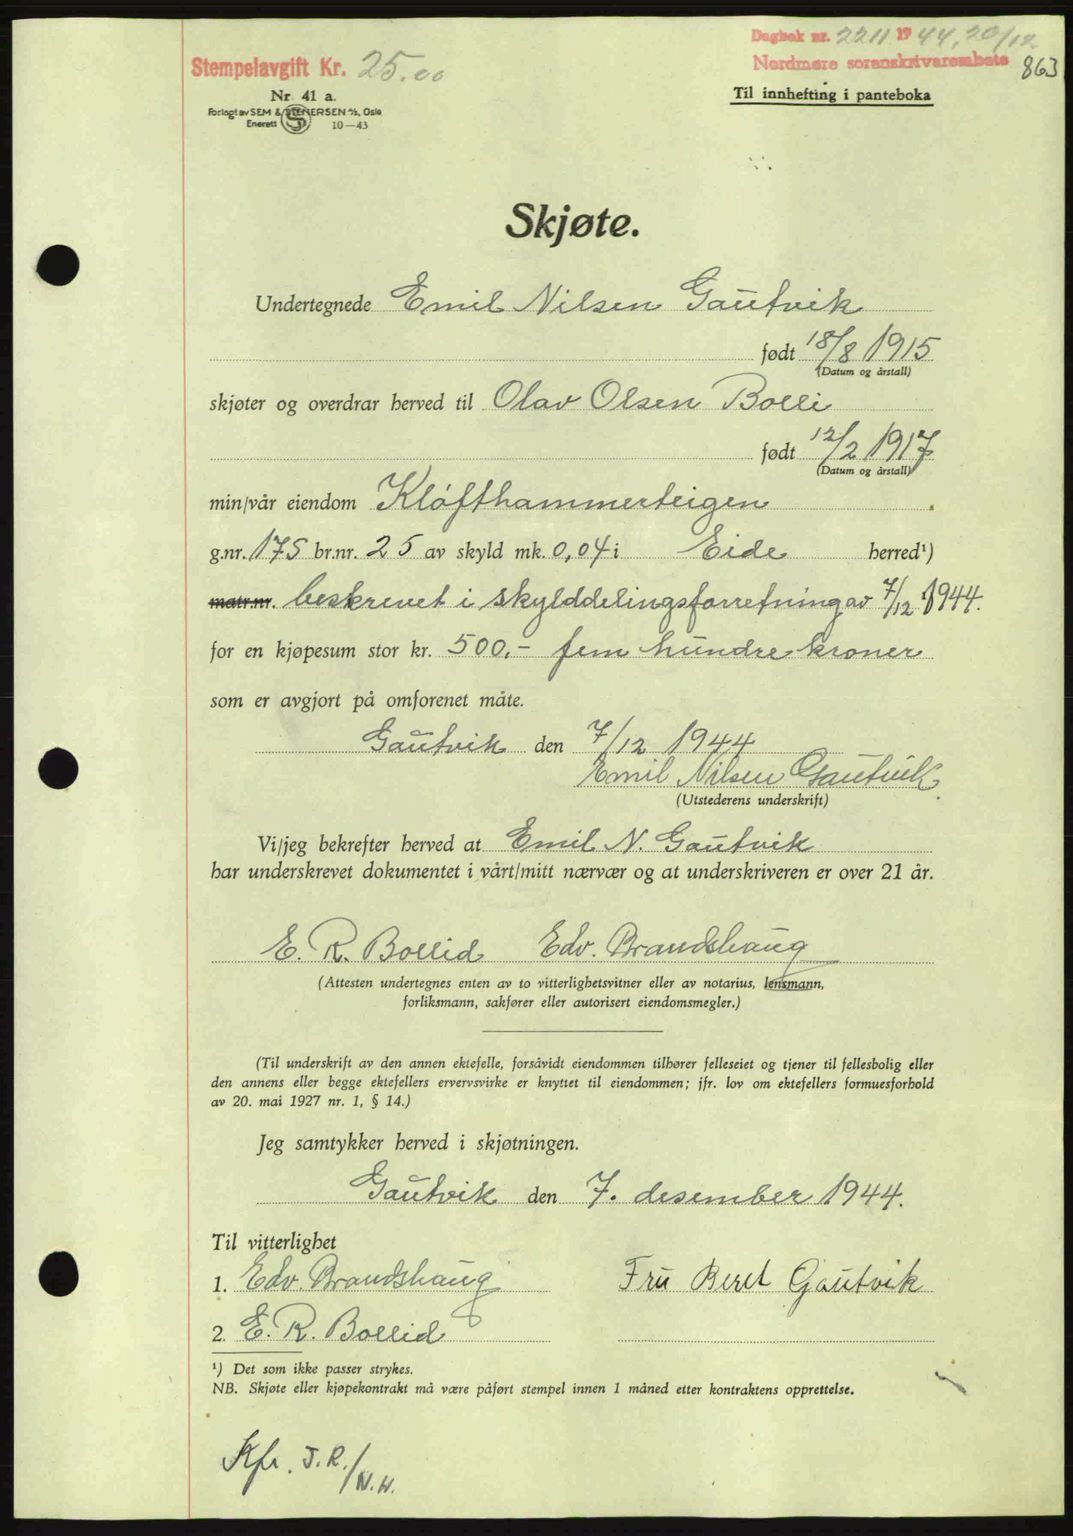 Dagbok nr. 2211 1944, 20/12
Stempelavgift Kr. 25.00
Nordmøre sorenskriverembete 863
Nr 41 a.
Til innhefting i panteboka
Forlagt av SEM & STENERSEN A/S, Oslo
Enerett S 10—43
Skjøte.
Undertegnede Emil Nilsen Gautvik
født 18/8 1915
(Datum og årstall)
skjøter og overdrar herved til Olav Olsen Bolli
født 12/2 1917
(Datum og årstall)
min/vår eiendom Kløfthammerteigen
g.nr. 175 br.nr. 25 av skyld mk. 0,04 i Eide herred¹)
matr.nr. beskrevet i skylddelingsforretning av 7/12 1944.
for en kjøpesum stor kr. 500.- fem hundre kroner
som er avgjort på omforenet måte.
Gautvik den 7/12 1944
Emil Nilsen Gautvik
(Utstederens underskrift)
Vi/jeg bekrefter herved at Emil N. Gautvik
har underskrevet dokumentet i vårt/mitt nærvær og at underskriveren er over 21 år.
E. R. Bollid Edv. Brandshaug
(Attesten undertegnes enten av to vitterlighetsvitner eller av notarius, lensmann,
forliksmann, sakfører eller autorisert eiendomsmegler.)
(Til underskrift av den annen ektefelle, forsåvidt eiendommen tilhører felleseiet og tjener til fellesbolig eller
den annens eller begge ektefellers ervervsvirke er knyttet til eiendommen; jfr. lov om ektefellers formuesforhold
av 20. mai 1927 nr. 1, § 14.)
Jeg samtykker herved i skjøtningen.
Gautvik den 7. desember 1944.
Til vitterlighet
1. Edv. Brandshaug Fru Beret Gautvik
2. E. R. Bollid
¹) Det som ikke passer strykes.
NB. Skjøte eller kjøpekontrakt må være påført stempel innen 1 måned etter kontraktens opprettelse.
Kfr. J.R./N.H.